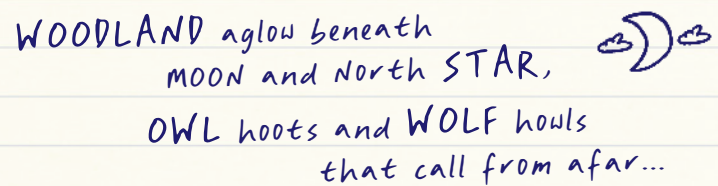 WOODLAND aglow beneath
MOON and North STAR,
OWL hoots and WOLF howls
that call from afar...